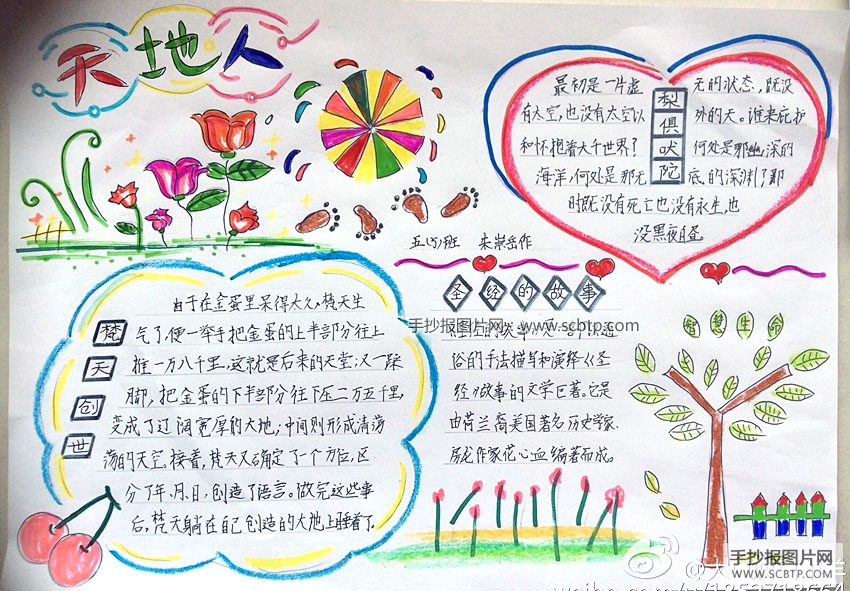 天地人
最初是一片虚无的状态,既没
有太空,也没有太空以外的天。谁来庇护
和怀抱着大千世界?何处是那幽深的
海洋,何处是那无底的深渊?那
时既没有死亡也没有永生,也
没黑夜白昼
梨
俱
吠
陀
班
作
圣经的故事
手抄报图片网—www.scbtp.com
俗的手法描写和演绎《圣
经》故事的文学巨著。它是
由荷兰裔美国著名历史学家、
房龙作家花心血编著而成。
智慧生命
梵
天
创
世
由于在金蛋里呆得太久,梵天生
气了,便一举手把金蛋的上半部分往上
推一万八千里,这就是后来的天堂;又一跺
脚,把金蛋的下半部分往下压二万五千里,
变成了辽阔宽厚的大地;中间则形成清荡
荡的天空。接着,梵天又确定了一个方位,区
分了年、月、日,创造了语言。做完这些事
后,梵天躺在自己创造的大地上睡着了。
手抄报图片网
WWW.SCBTP.COM